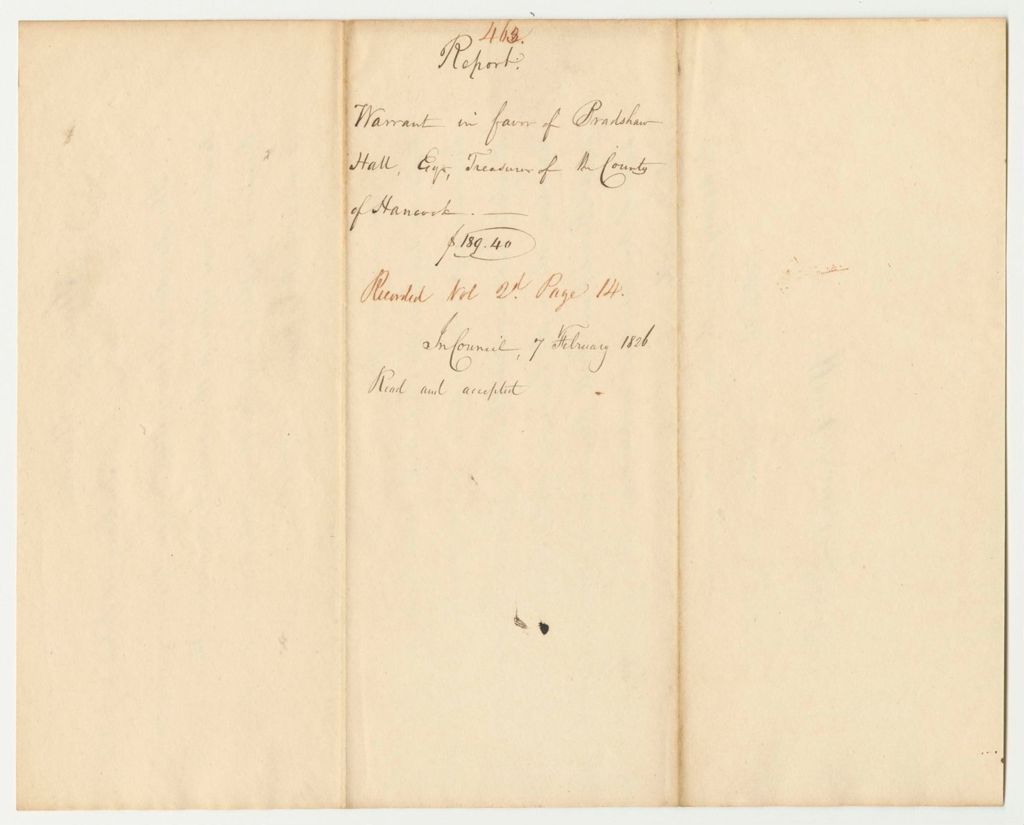 463.
Report.
Warrant in favor of Bradshaw
Hall, Esqr, Treasurer of the County
of Hancock. —
$189.40
Recorded Vol 2d. Page 14.
In Council, 7 February 1826
Read and accepted